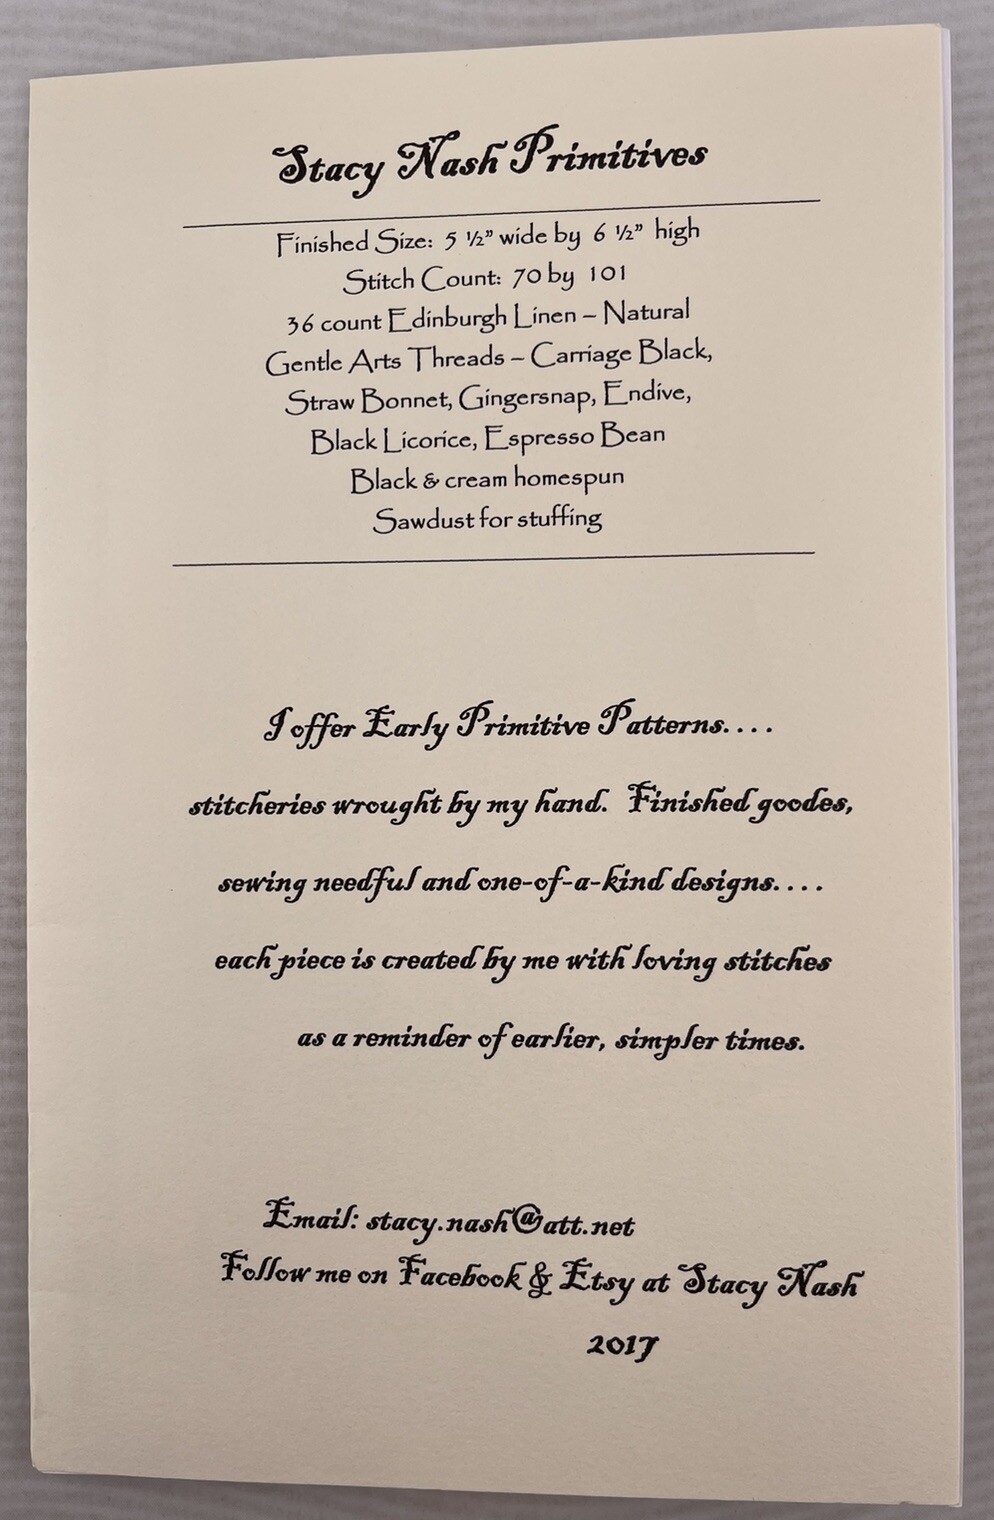 Stacy Nash Primitives
Finished Size: 5 ½” wide by 6 ½” high
Stitch Count: 70 by 101
36 count Edinburgh Linen – Natural
Gentle Arts Threads – Carriage Black,
Straw Bonnet, Gingersnap, Endive,
Black Licorice, Espresso Bean
Black & cream homespun
Sawdust for stuffing
I offer Early Primitive Patterns....
stitcheries wrought by my hand. Finished goodes,
sewing needful and one-of-a-kind designs....
each piece is created by me with loving stitches
as a reminder of earlier, simpler times.
Email: stacy.nash@att.net
Follow me on Facebook & Etsy at Stacy Nash
2017